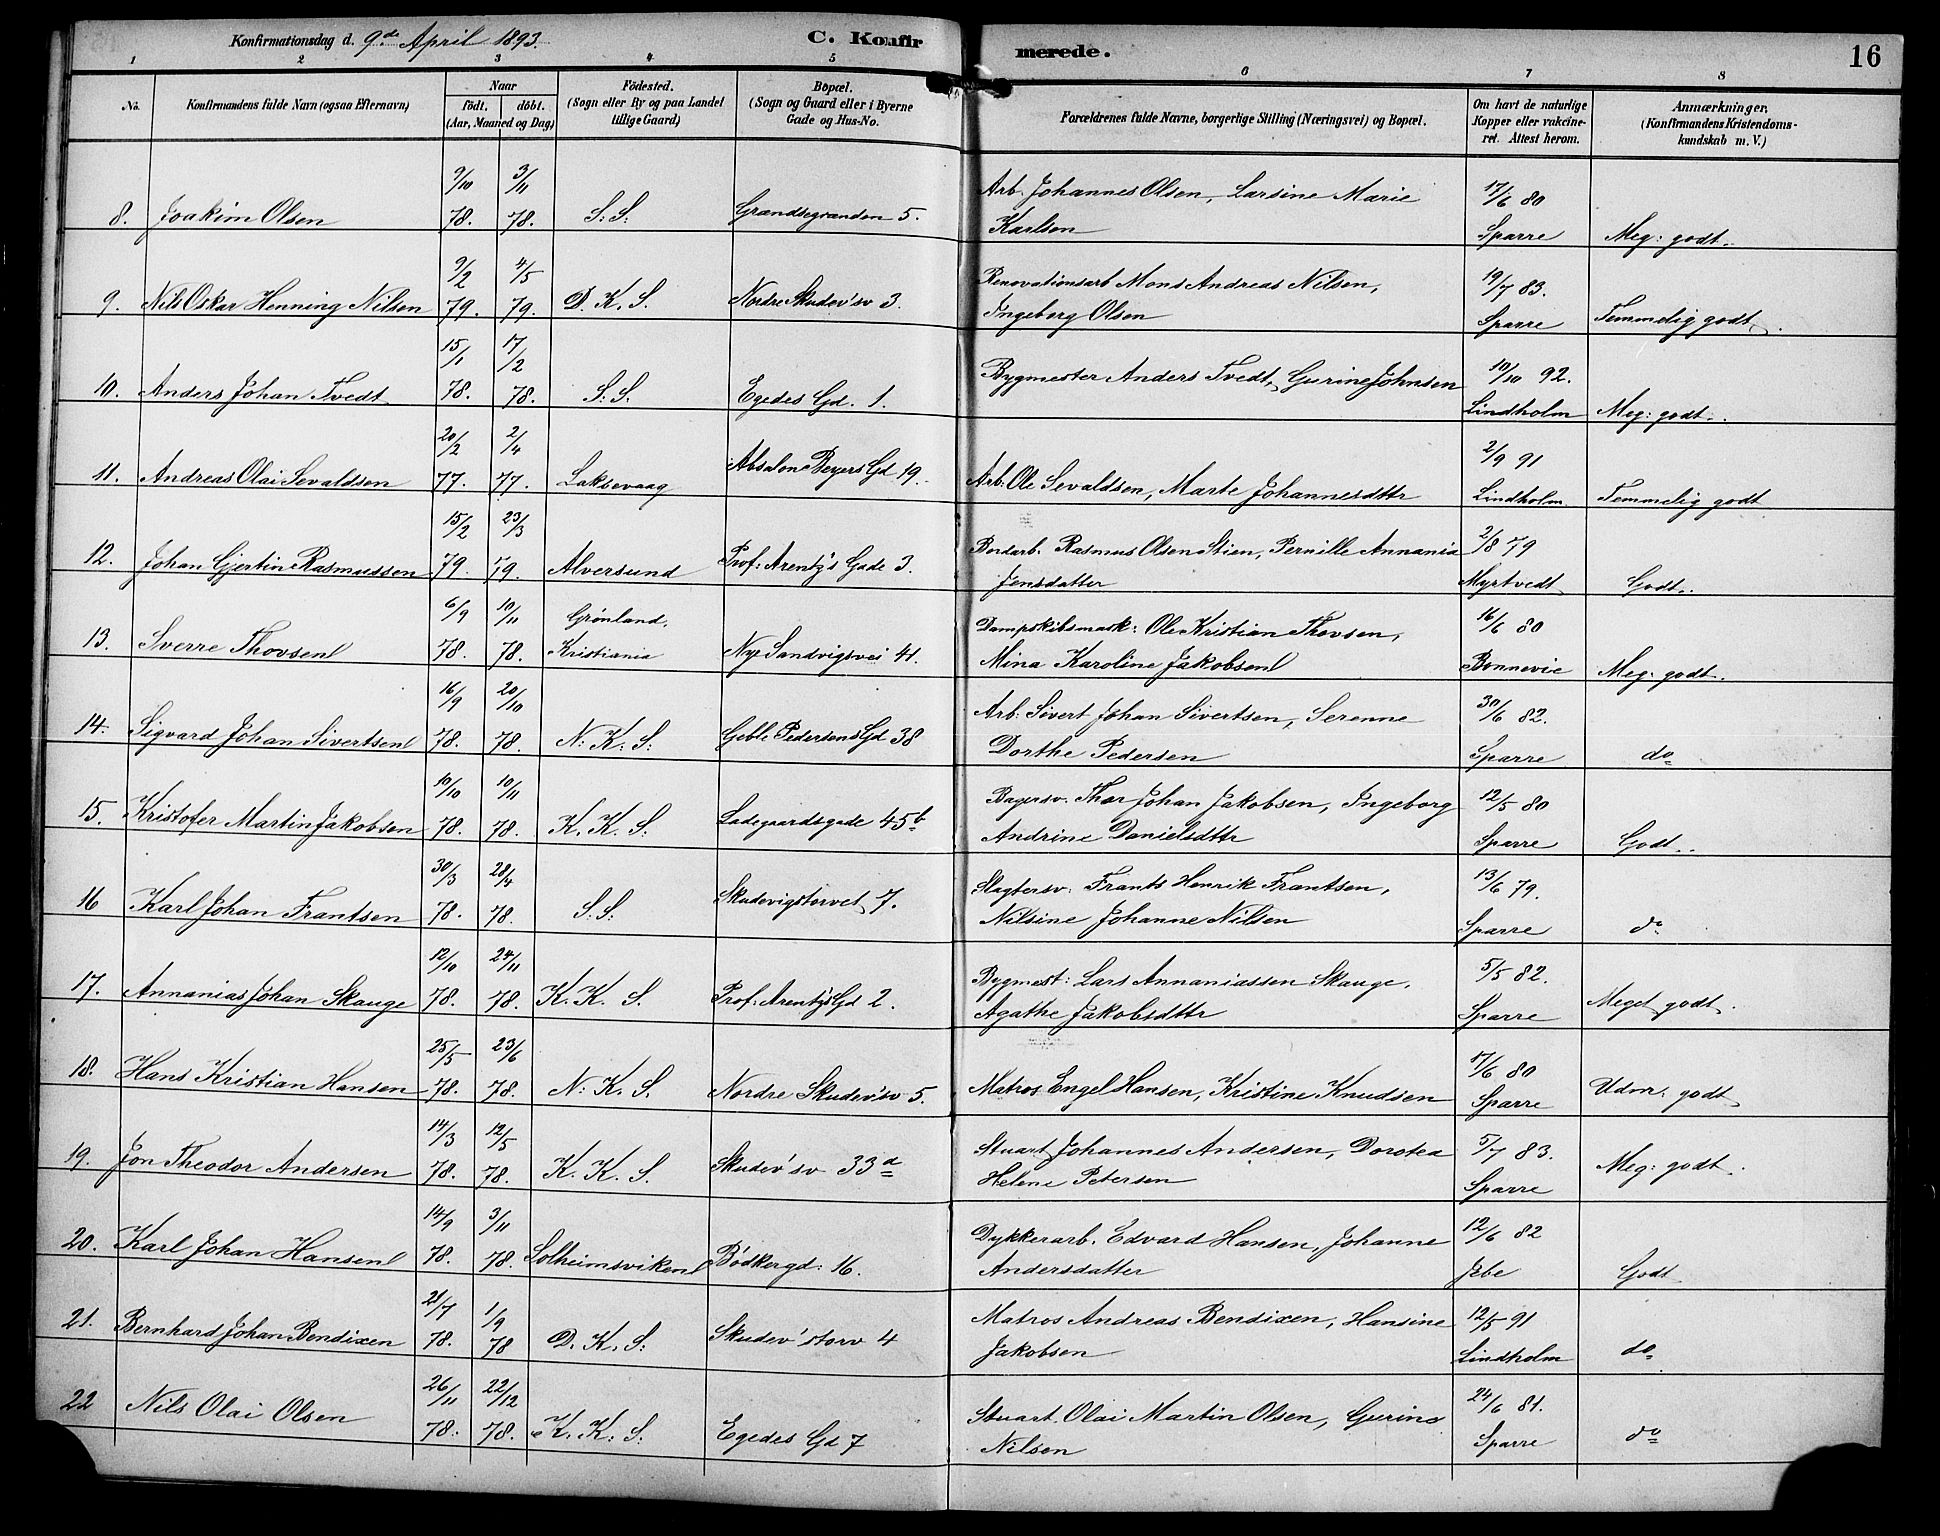 Konfirmationsdag d. 9de April 1893.
C. Konfirmerede.
16
1 2 3 4 5 6 7 8
No.
Konfirmandens fulde Navn (ogsaa Efternavn)
Naar
födt. döbt.
(Aar, Maaned og Dag)
Födested.
(Sogn eller By og paa Landet
tillige Gaard)
Bopæl.
(Sogn og Gaard eller i Byerne
Gade og Hus-No.
Forældrenes fulde Navne, borgerlige Stilling (Næringsvei) og Bopæl.
Om havt de naturlige
Kopper eller vakcine-
ret. Attest herom.
Anmærkninger.
(Konfirmandens Kristendoms-
kundskab m. V.)
9/10 3/11 Arb. Johannes Olsen, Larsine Marie 17/6 80
8. Joakim Olsen 78. 78. S: S: Grændsegrænden 5. Karlsen Sparre Meg: godt.
9/2 4/5 Renovationsarb Mons Andreas Nilsen, 19/7 83.
9. Nils Oskar Henning Nilsen 79. 79. D. K. S. Nordre Skudev'sv 3. Ingeberg Olsen Sparre Temmelig godt.
15/1 17/2 Bygmester Anders Tvedt, Gurine Johnsen 10/10 92.
10. Anders Johan Tvedt 78. 78. S: S. Egedes Gd. 1. Lindholm Meg: godt.
20/2 2/4 2/9 91
11. Andreas Olai Sevaldsen 77. 77. Laksevaag Absalon Beyers Gd 19. Arb: Ole Sevaldsen, Marte Johannesdttr Lindholm. Temmelig godt
15/2 23/3 Bordarb. Rasmus Olsen Stien, Pernille Annania 2/8 79
12. Johan Gjertin Rasmussen 79. 79. Alversund Prof: Arentz's Gade 3. Jensdatter Myrtvedt Godt.
6/9 10/11 Grønland, Dampskibsmask: Ole Kristian Thovsen, 16/6 80
13. Sverre Thovsen 78. 78. Kristiania Nye Sandvigsvei 41. Mina Karoline Jakobsen Bonnevie Meg: godt.
16/9 20/10 Arb: Sivert Johan Sivertsen, Serenne 30/6 82.
14. Sigvard Johan Sivertsen 78. 78. N: K: S: Geble Pedersens Gd 38 Dorthe Pedersen Sparre do
10/10 10/11 Bagersv. Thor Johan Jakobsen, Ingeborg 12/5 80
15. Kristofer Martin Jakobsen 78. 78. K. K. S: Ladegaardsgade 45b Andrine Danielsdttr Sparre Godt.
30/3 28/4 Slagtersv: Frants Henrik Frantsen, 13/6 79.
16 Karl Johan Frantsen 78. 78. S: S: Skudevigstorvet 7. Nilsine Johanne Nilsen Sparre do
12/10 24/11 Bygmest: Lars Annaniassen Skauge, 5/5 82.
17. Annanias Johan Skauge 78. 78. K. K. S. Prof: Arentz's Gd 2. Agathe Jakobsdttr Sparre Meget godt.
25/5 23/6 17/6 80
18. Hans Kristian Hansen 78. 78. N: K. S. Nordre Skudev'sv 5. Matros Engel Hansen, Kristine Knudsen Sparre Udm: godt
14/3 12/5 Stuart Johannes Andersen, Dorotea 5/7 83.
19. Jon Theodor Andersen 78. 78. K. K. S. Skudev'sv 33d Helene Petersen Sparre Meg: godt.
14/9 3/11 Dykkerarb. Edvard Hansen, Johanne 12/6 82
20. Karl Johan Hansen 78. 78. Solheimsviken Bödkergd: 16. Andersdatter Jebe Godt
21/7 1/9 Matros Andreas Bendixen, Hansine 12/5 91
21. Bernhard Johan Bendixen 78. 78 D. K. S: Skudev'storv 4 Jakobsen Lindholm do
26/11 22/12 Stuart. Olai Martin Olsen, Gurine 24/6 81.
22 Nils Olai Olsen 78. 78. K. K. S: Egedes Gd 7 Nilsen Sparre do